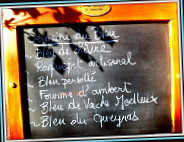 au Bleu
Bleu de
Roquefort artisanal
Bleu persillé
Fourme d'ambert
Bleu de Vache Moelleux
Bleu du Queyras